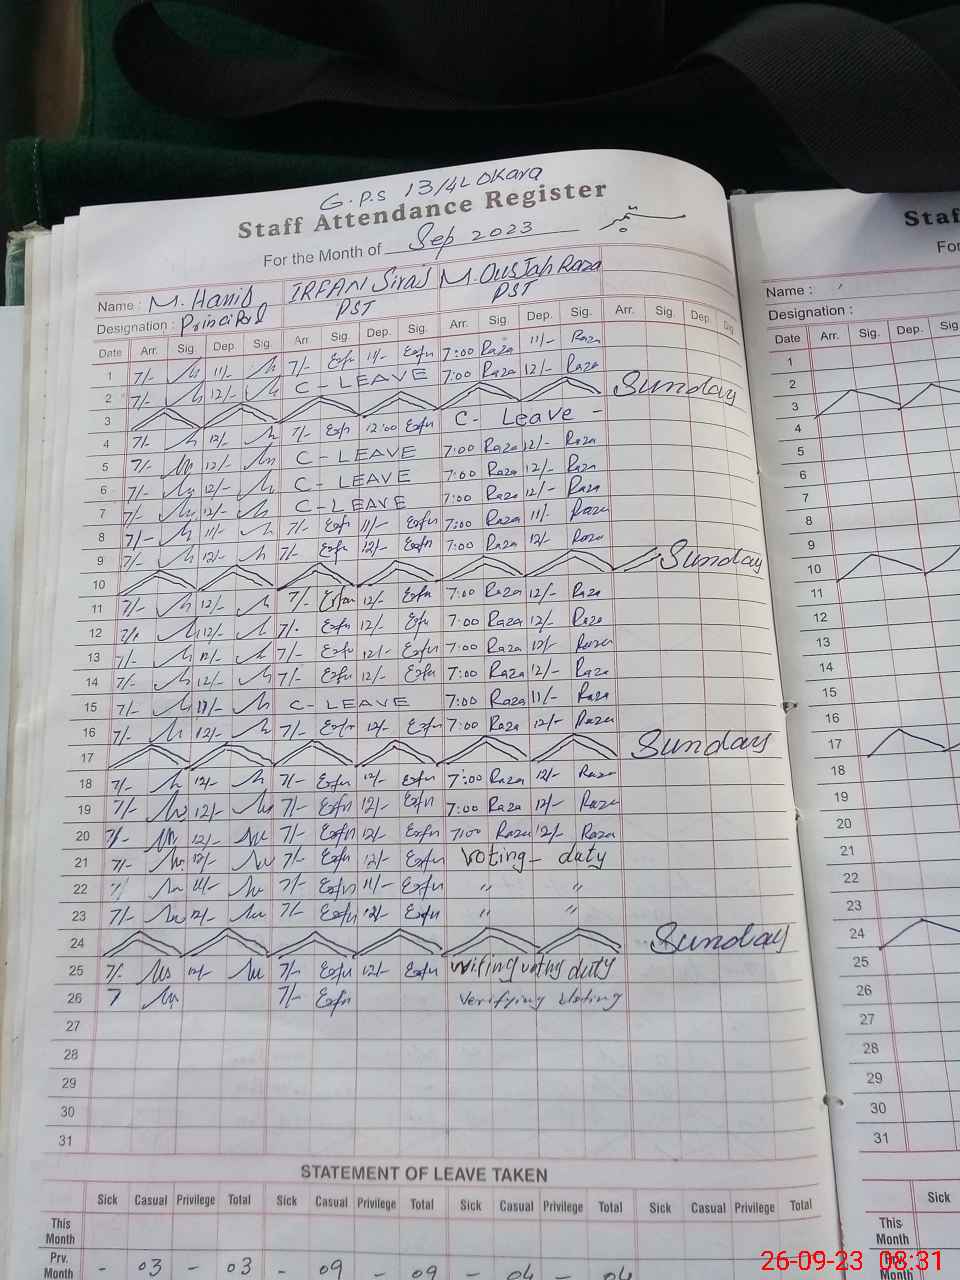 G.P.S 13/4L Okara
Staff Attendance Register
For the Month of Sep 2023
Name : M. Hanif IRFAN Siraj M. Ous Jah Raza
Designation : Principal PST PST
Date Arr. Sig. Dep. Sig. Arr. Sig. Dep. Sig. Arr. Sig. Dep. Sig. Arr. Sig. Dep. Sig.
1 7/- 11/- 7/- Exfn 11/- Exfn 7:00 Raza 11/- Raza
2 7/- 12/- C-LEAVE 7:00 Raza 12/- Raza
3 Sunday
4 7/- 12/- 7/- Exfn 12:00 Exfn C- Leave -
5 7/- 12/- C-LEAVE 7:00 Raza 12/- Raza
6 7/- 12/- C-LEAVE 7:00 Raza 12/- Raza
7 7/- 12/- C-LEAVE 7:00 Raza 12/- Raza
8 7/- 11/- 7/- Exfn 11/- Exfn 7:00 Raza 11/- Raza
9 7/- 12/- 7/- Exfn 12/- Exfn 7:00 Raza 12/- Raza
10 Sunday
11 7/- 12/- 7/- Exfn 12/- Exfn 7:00 Raza 12/- Raza
12 7/- 12/- 7/- Exfn 12/- Exfn 7:00 Raza 12/- Raza
13 7/- 12/- 7/- Exfn 12/- Exfn 7:00 Raza 12/- Raza
14 7/- 12/- 7/- Exfn 12/- Exfn 7:00 Raza 12/- Raza
15 7/- 11/- C-LEAVE 7:00 Raza 11/- Raza
16 7/- 12/- 7/- Exfn 12/- Exfn 7:00 Raza 12/- Raza
17 Sunday
18 7/- 12/- 7/- Exfn 12/- Exfn 7:00 Raza 12/- Raza
19 7/- 12/- 7/- Exfn 12/- Exfn 7:00 Raza 12/- Raza
20 7/- 12/- 7/- Exfn 12/- Exfn 7:00 Raza 12/- Raza
21 7/- 12/- 7/- Exfn 12/- Exfn Voting - duty
22 7/ 11/- 7/- Exfn 11/- Exfn " "
23 7/- 12/- 7/- Exfn 12/- Exfn " "
24 Sunday
25 7/- 12/- 7/- Exfn 12/- Exfn voting duty
26 7 7/- Exfn Verifying Voting
27
28
29
30
31
STATEMENT OF LEAVE TAKEN
Sick Casual Privilege Total Sick Casual Privilege Total Sick Casual Privilege Total Sick Casual Privilege Total
This Month
Prv. Month - 03 - 03 - 09 - 09 - 04 - 04
Staf
Fo
Name :
Designation :
Date Arr. Sig. Dep. Sig.
1
2
3
4
5
6
7
8
9
10
11
12
13
14
15
16
17
18
19
20
21
22
23
24
25
26
27
28
29
30
31
Sick
This Month
Prv. Month
26-09-23 08:31